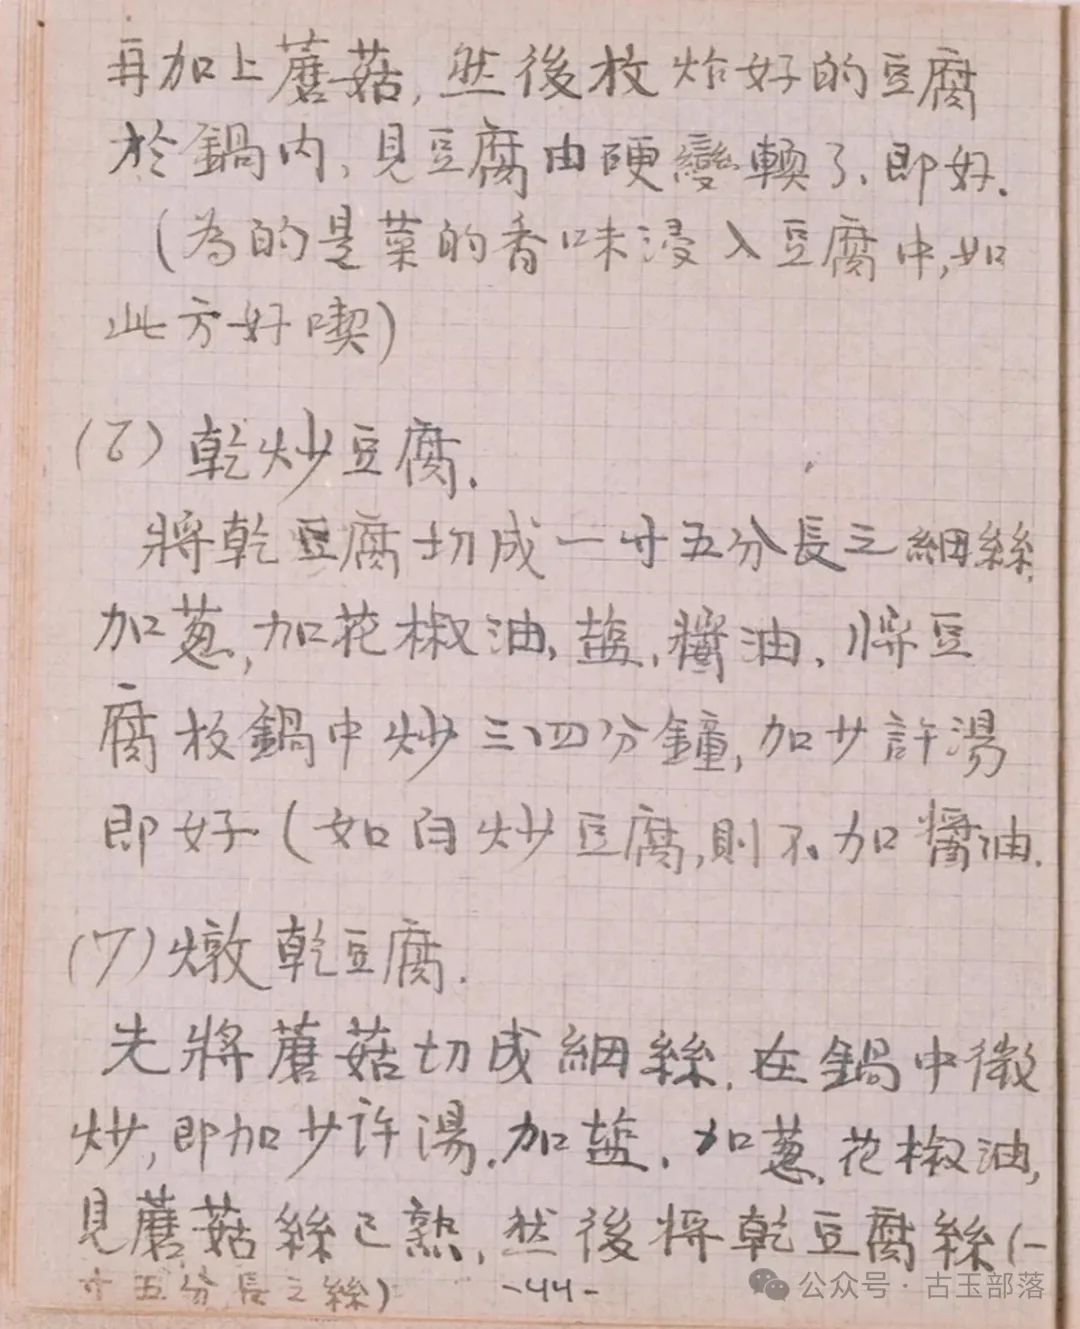 再加上蘑菇，然後放炸好的豆腐
於鍋内，見豆腐由硬變軟了，即好．
（為的是菜的香味浸入豆腐中，如
此方好喫）
（6）乾炒豆腐．
將乾豆腐切成一寸五分長之細絲，
加蔥，加花椒油，盐，醬油，將豆
腐放鍋中炒三、四分鐘，加少許湯
即好（如白炒豆腐，則不加醬油．
（7）燉乾豆腐．
先將蘑菇切成細絲，在鍋中微
炒，即加少許湯．加盐，加蔥，花椒油，
見蘑菇絲已熟，然後將乾豆腐絲（一
寸五分長之絲）
-44-
公众号·古玉部落